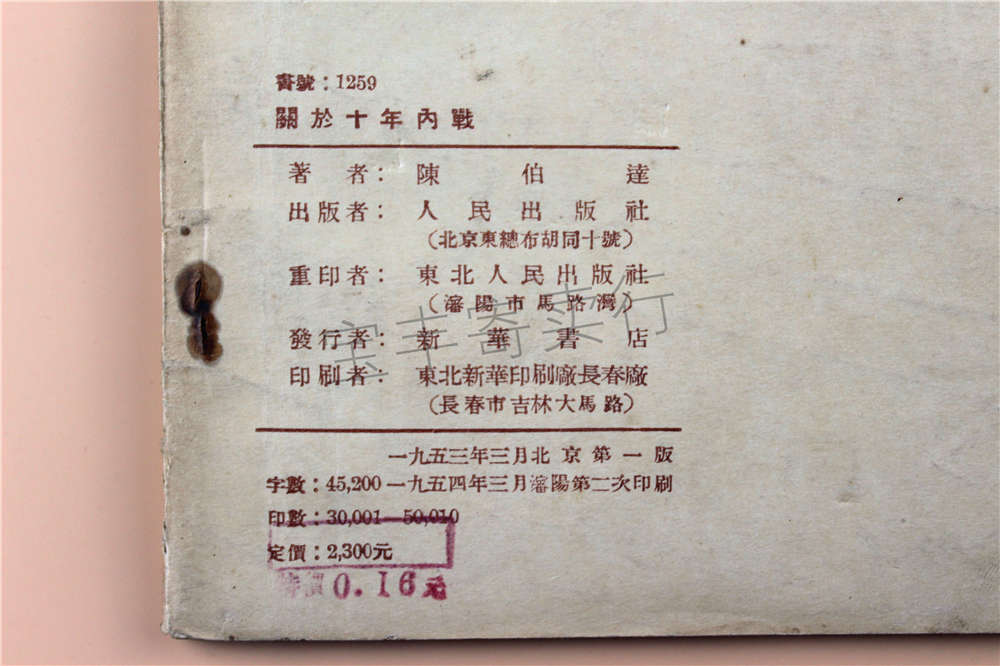 書號：1259
關於十年內戰
著者：陳伯達
出版者：人民出版社
（北京東總布胡同十號）
重印者：東北人民出版社
（瀋陽市馬路灣）
發行者：新華書店
印刷者：東北新華印刷廠長春廠
（長春市吉林大馬路）
一九五三年三月北京第一版
字數：45,200 一九五四年三月瀋陽第二次印刷
印數：30,001—50,010
定價：2,300元
特價0.16元
宝丰寄卖行